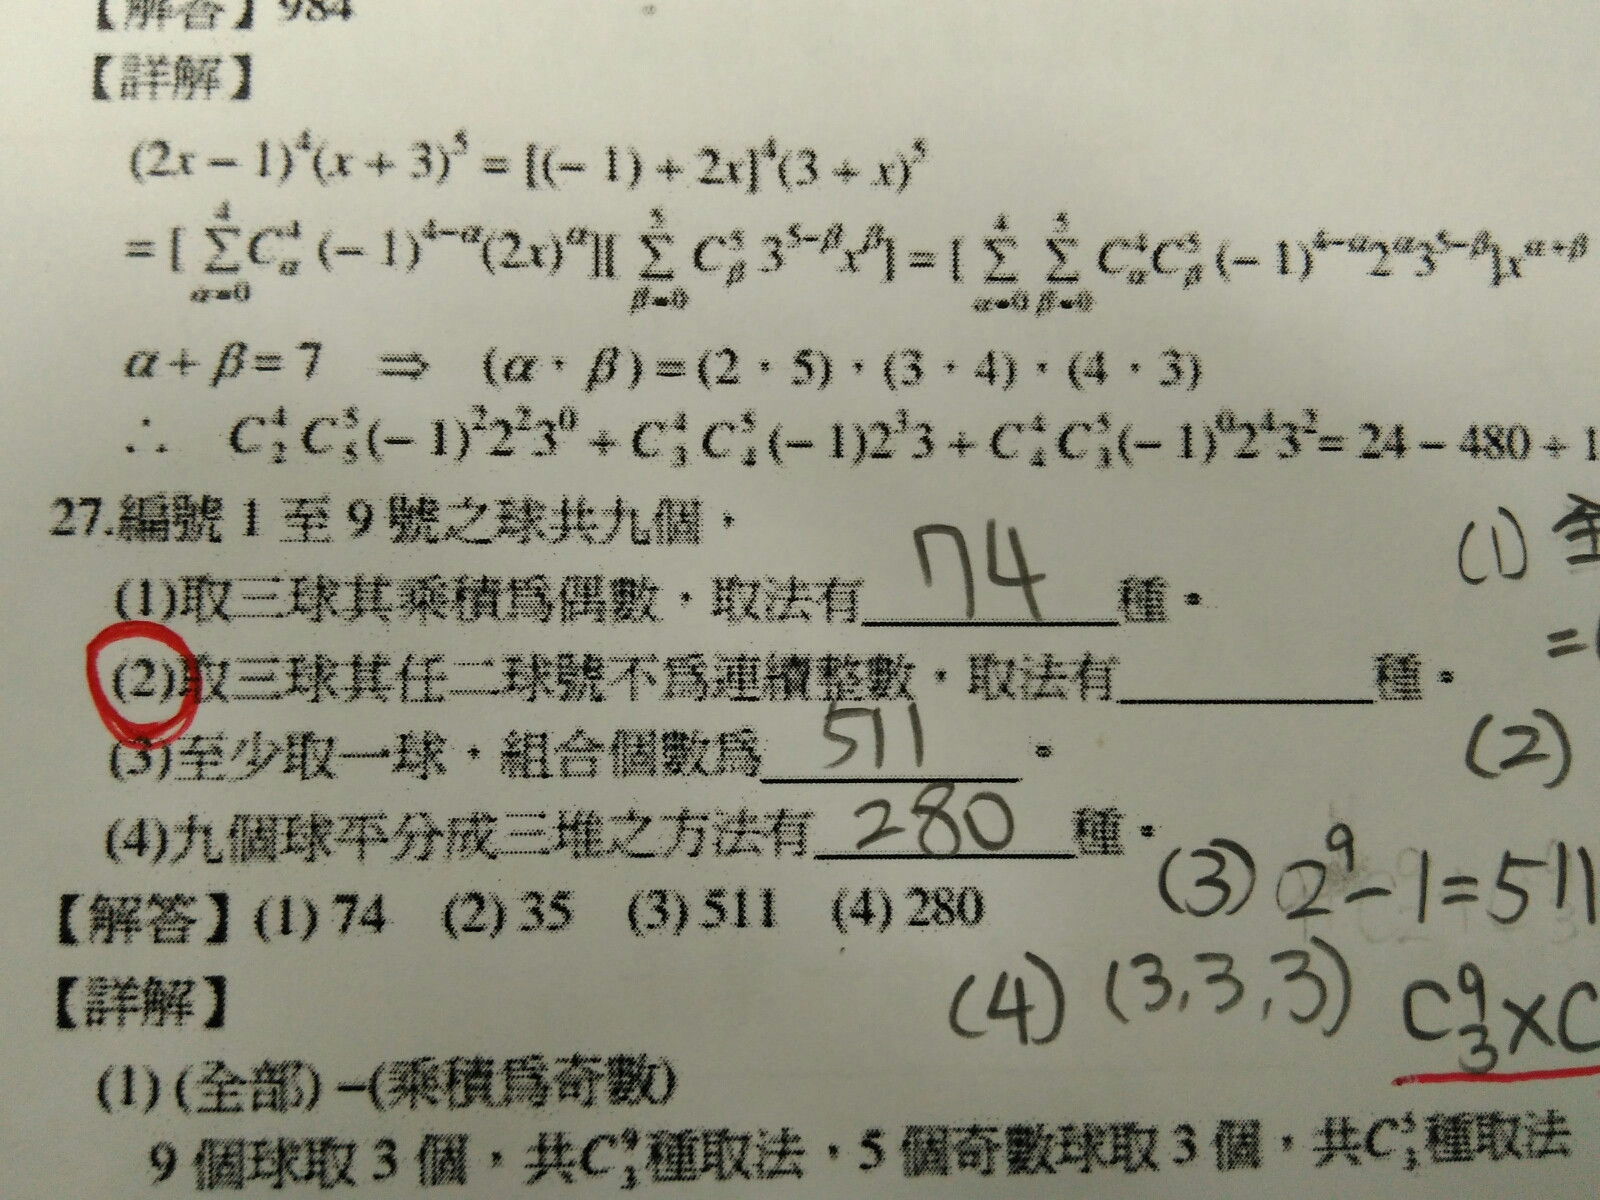 【解答】984
【詳解】
(2x − 1)⁴(x + 3)⁵ = [(− 1) + 2x]⁴(3 + x)⁵
= [ Σ_{α=0}^{4} C_α^4 (− 1)^{4−α}(2x)^α][ Σ_{β=0}^{5} C_β^5 3^{5−β}x^β] = [ Σ_{α=0}^{4} Σ_{β=0}^{5} C_α^4 C_β^5 (− 1)^{4−α}2^α3^{5−β}]x^{α+β}
α + β = 7 ⇒ (α,β) = (2,5),(3,4),(4,3)
∴ C_2^4 C_5^5 (− 1)²2²3⁰ + C_3^4 C_4^5 (− 1)2³3 + C_4^4 C_3^5 (− 1)⁰2⁴3² = 24 − 480 + 1
27.編號 1 至 9 號之球共九個,
(1)取三球其乘積為偶數,取法有 74 種。
(2)取三球其任二球號不為連續整數,取法有________種。
(3)至少取一球,組合個數為 511 。
(4)九個球平分成三堆之方法有 280 種。
【解答】(1) 74 (2) 35 (3) 511 (4) 280
【詳解】
(1) (全部) −(乘積為奇數)
9 個球取 3 個,共C_3^9種取法,5 個奇數球取 3 個,共C_3^5種取法
(1) 全
=(
(2)
(3) 2⁹ − 1 = 511
(4) (3,3,3) C_3^9 × C